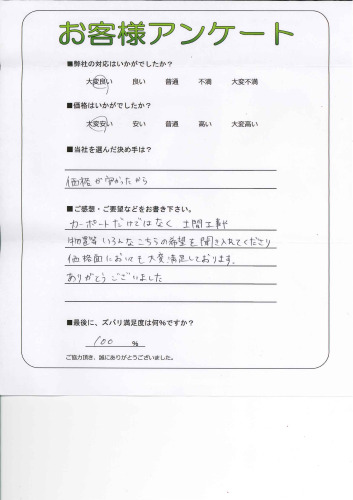 お客様アンケート
■弊社の対応はいかがでしたか？
大変良い 良い 普通 不満 大変不満
■価格はいかがでしたか？
大変安い 安い 普通 高い 大変高い
■当社を選んだ決め手は？
価格が安かったから
■ご感想・ご要望などをお書き下さい。
カーポートだけではなく 土間工事
物置等 いろんなこちらの希望を聞き入れてくださり
価格面においても大変満足しております。
ありがとうございました
■最後に、ズバリ満足度は何%ですか？
100 %
ご協力頂き、誠にありがとうございました。